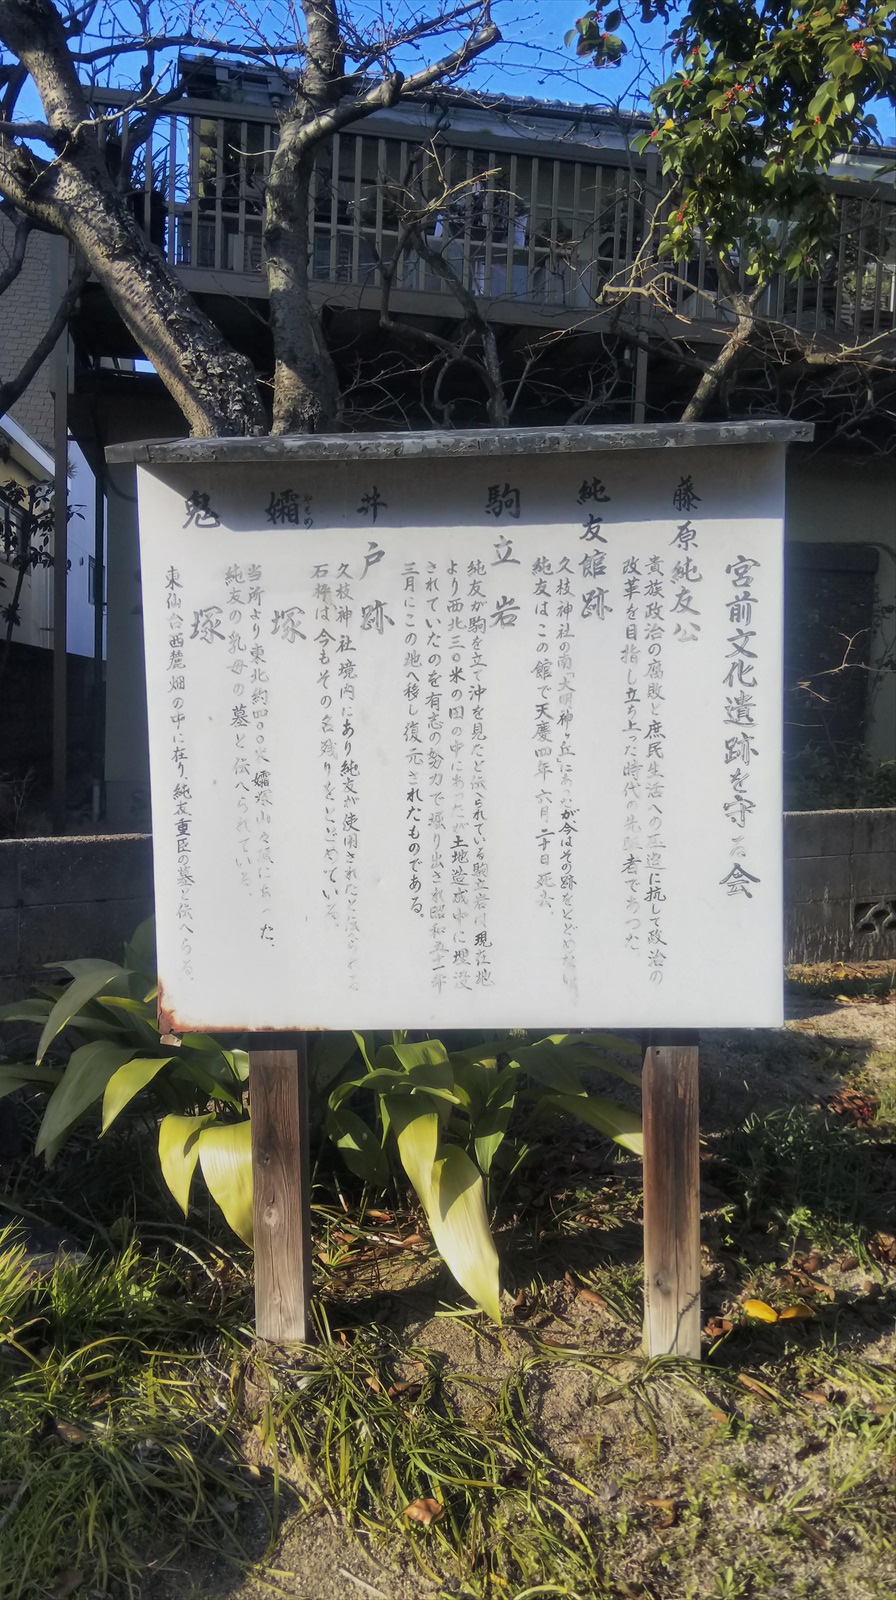 宮前文化遺跡を守る会
藤原純友公
貴族政治の腐敗と庶民生活への圧迫に抗して政治の
改革を目指し立ち上った時代の先駆者であつた。
純友館跡
久枝神社の南「大明神ヶ丘」にあったが、今はその跡をとどめない。
純友はこの館で天慶四年六月二十日死去。
駒立岩
純友が駒を立て沖を見たと伝えられている駒立岩は、現在地
より西北三〇米の田の中にあったが土地造成中に埋没
されていたのを有志の努力で掘り出され昭和五十一年
三月にこの地へ移し復元されたものである。
井戸跡
久枝神社境内にあり純友が使用されたと伝
石枠は今もその名残りをとどめている。
孀塚
やもめ
当所より東北約四〇〇米孀塚山々頂にあった。
純友の乳母の墓と伝へられている。
鬼塚
東仙台西麓畑の中に在り、純友重臣の墓と伝へらる。